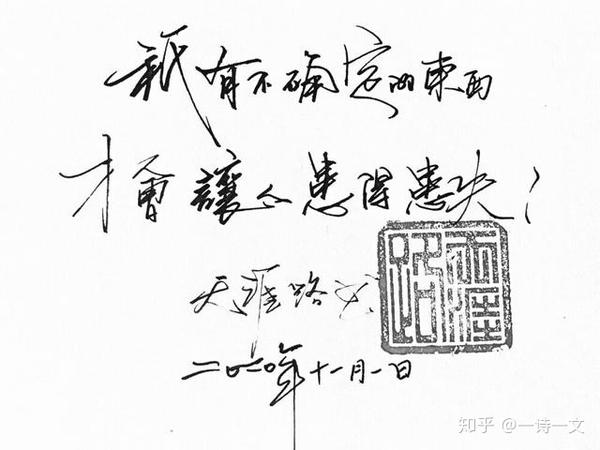 祇有不确定的東西
才會讓人患得患失！
天涯路
二〇二〇年十一月一日
天涯路
知乎 @一诗一文